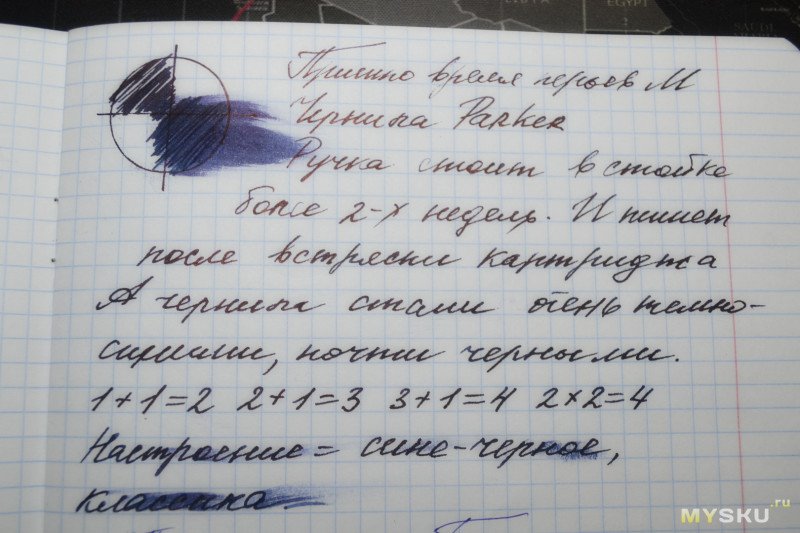 LIBYA
EGYPT
SAUDI
Пришло время героев М
Чернила Parker
Ручка стоит в стойке
более 2-х недель. И пишет
после встряски картриджа
А чернила стали очень темно-
синими, почти черными.
1+1=2 2+1=3 3+1=4 2×2=4
Настроение = сине-черное,
классика.
MYSKU.ru